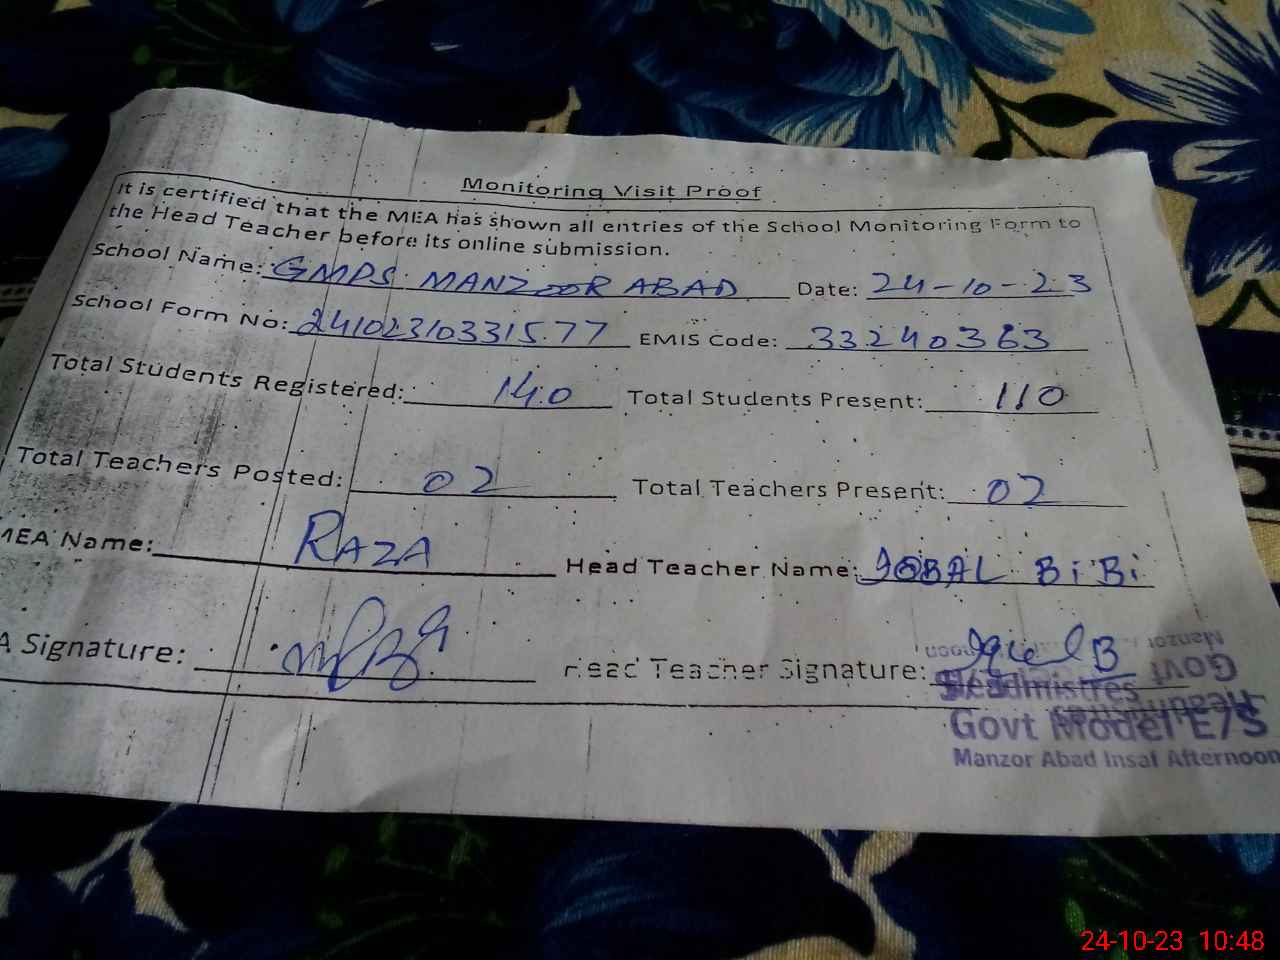 Monitoring Visit Proof
It is certified that the MEA has shown all entries of the School Monitoring Form to
the Head Teacher before its online submission.
School Name: GMPS MANZOOR ABAD Date: 24-10-23
School Form No: 24102310331577 EMIS Code: 33240363
Total Students Registered: 140 Total Students Present: 110
Total Teachers Posted: 02 Total Teachers Present: 02
MEA Name: RAZA Head Teacher Name: IQBAL BiBi
A Signature: Head Teacher Signature:
Headmistres
Govt Model E/S
Manzor Abad Insaf Afternoon
24-10-23 10:48